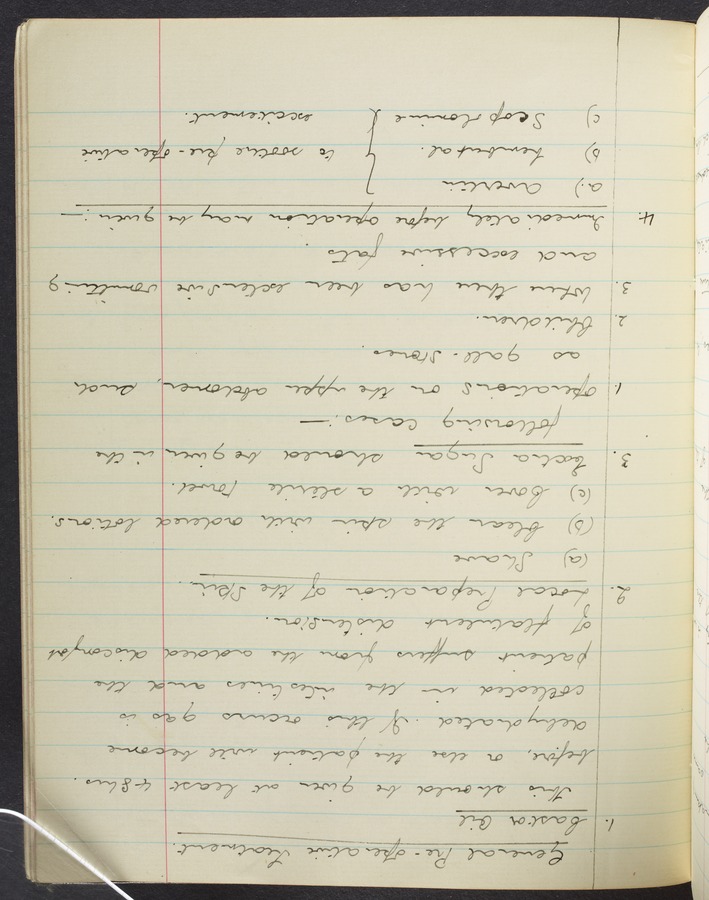 General Pre-operative Treatment.
1. Castor Oil
This should be given at least 48 hrs.
before, or else the patient will become
dehydrated. If this occurs gas is
collected in the intestines and the
patient suffers from the added discomfort
of flatulent distension.
2. Local Preparation of the Skin.
(a) Shave
(b) Clean the skin with ordered lotions.
(c) Cover with a sterile towel.
3. Extra Sugar should be given in the
following cases:—
1. Operations on the upper abdomen, such
as gall-stones.
2. Children.
3. When there has been extensive vomiting
and excessive fats.
4. Immediately before operation may be given:—
a.) Avertin
b) Nembutal. } to soothe pre-operative
c) Scopolamine excitement.